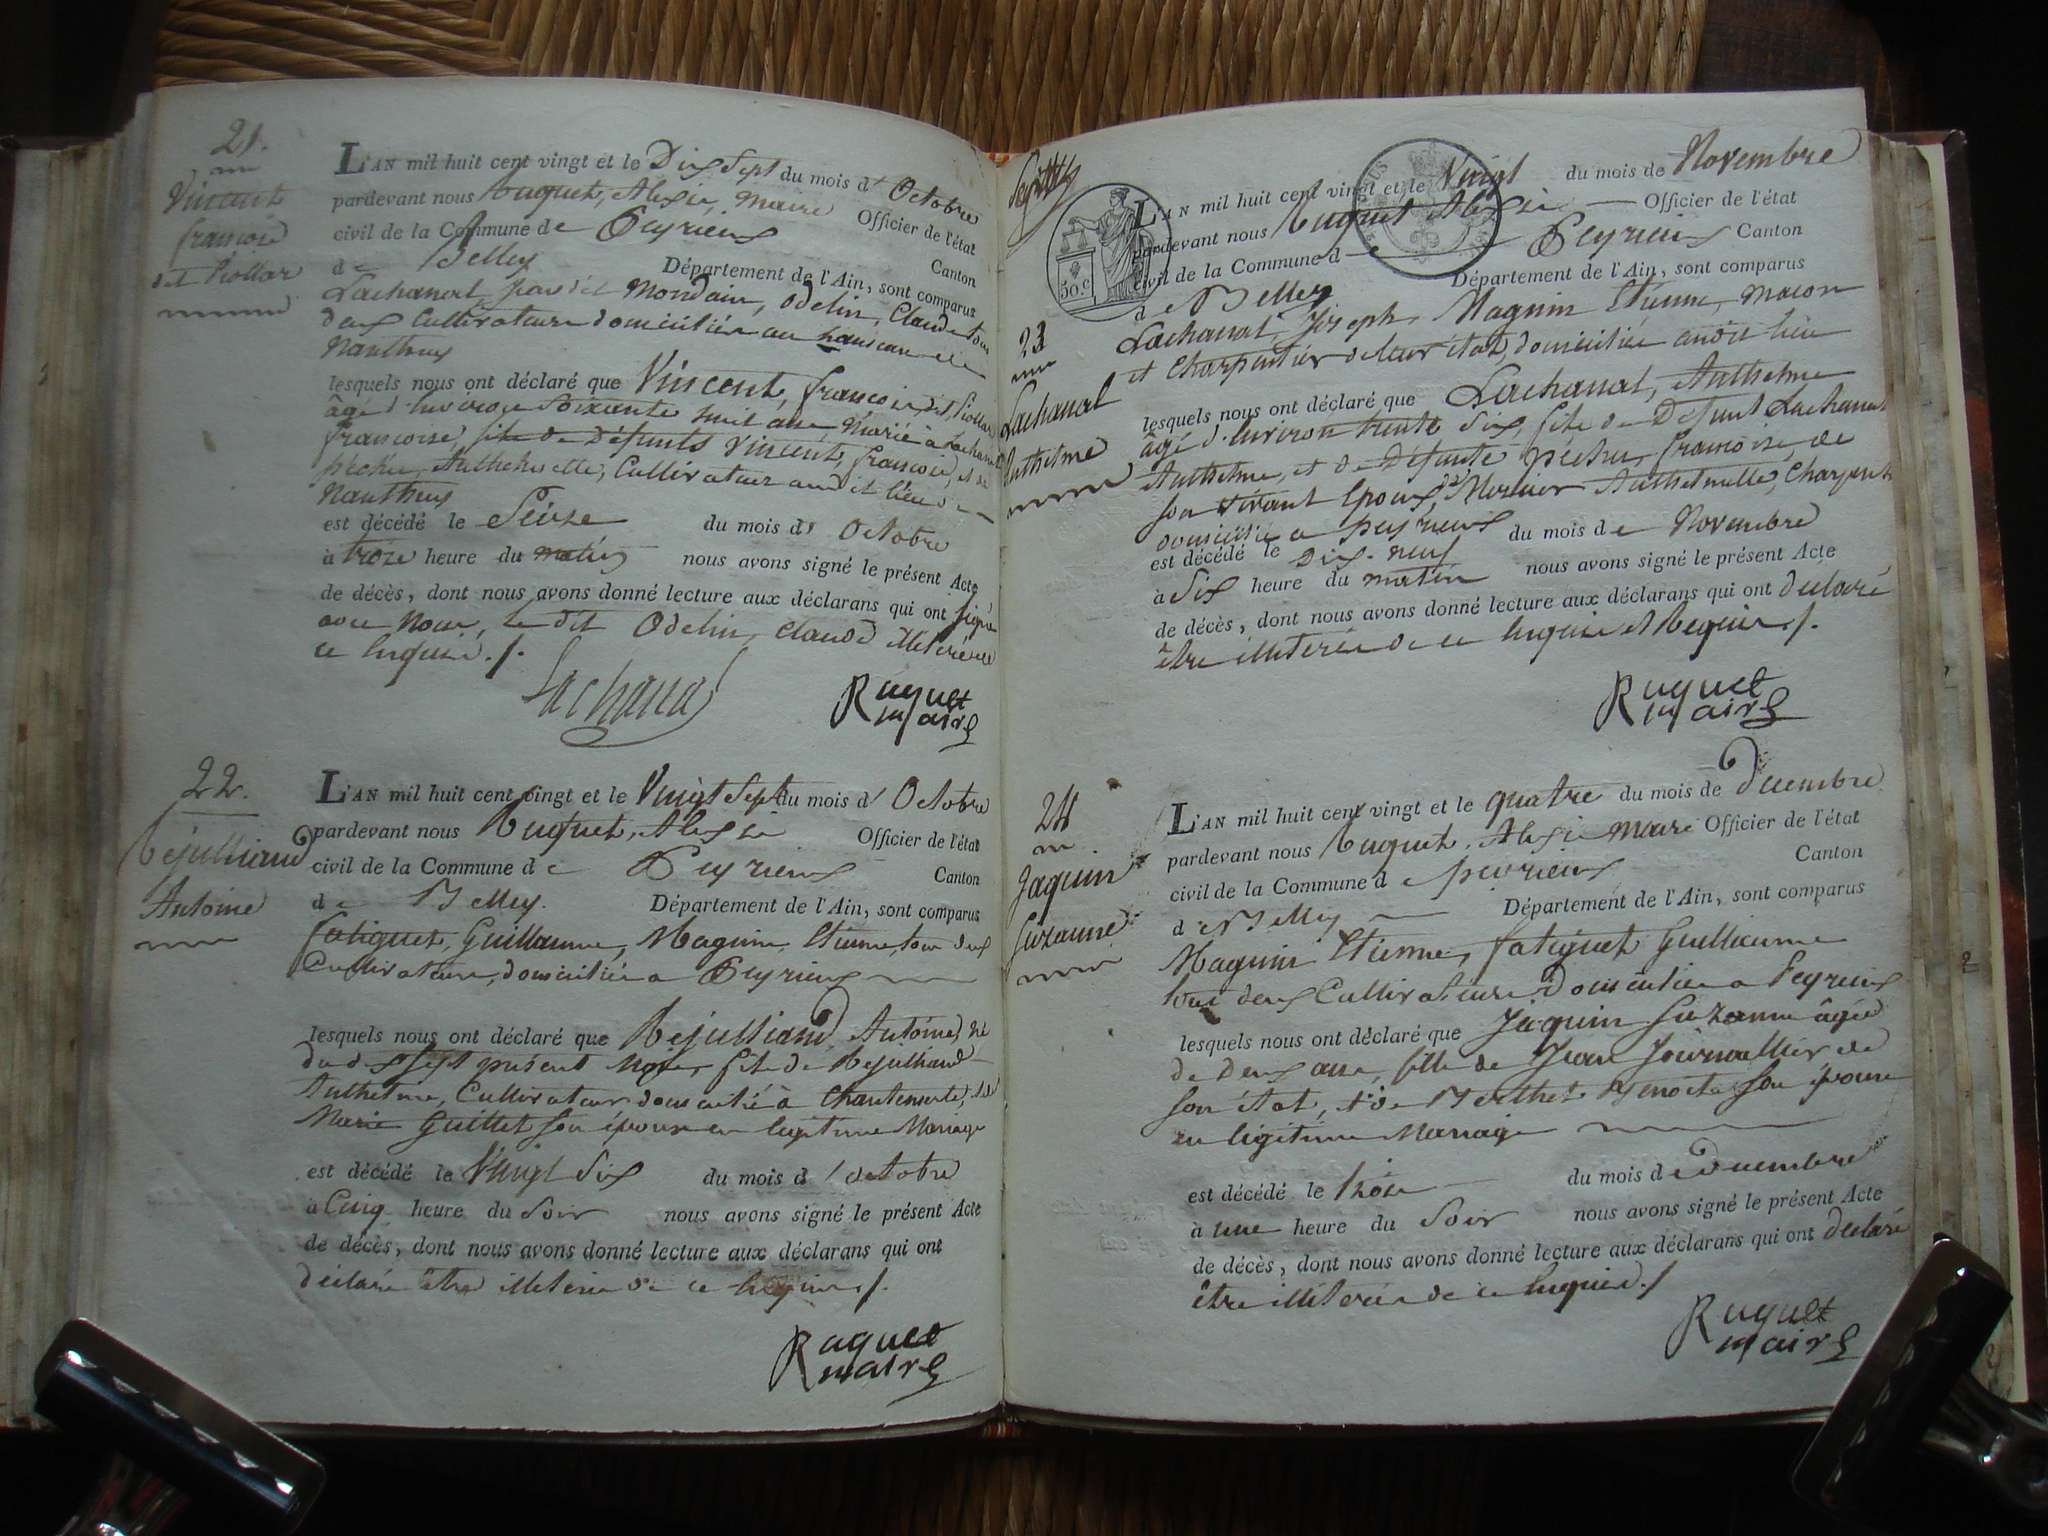 21.
Vincent
françois
dit Piollar
L'AN mil huit cent vingt et le Dix Sept du mois d' Octobre
pardevant nous Ruguet, Alexis, maire Officier de l'état
civil de la Commune de Peyrieux Canton
de Belley Département de l'Ain, sont comparus
Lachanal, Jean dit Mondain, Odelin, Claude tous
deux Cultivateurs domiciliés au hameau de
Nantheuy
lesquels nous ont déclaré que Vincent, françois, dit Piollar
âgé d'environ Soixante huit ans Marié à Lachanal
françoise, fils de Défunts Vincent, françois, et de
péchu, Anthelmette, Cultivateur au dit lieu de
Nantheuy
est décédé le Seize du mois d' Octobre
à troize heure du matin nous avons signé le présent Acte
de décès, dont nous avons donné lecture aux déclarans qui ont signé
avec Nous, le dit Odelin, Claude illiteré de
ce Enquis ./.
Lachanal
Ruguet
maire
22.
Rejulliand
Antoine
L'AN mil huit cent vingt et le Vingt Sept du mois d' Octobre
pardevant nous Ruguet, Alexis Officier de l'état
civil de la Commune de Peyrieux Canton
de Belley. Département de l'Ain, sont comparus
fatiguet, Guillaume, Maguin, Etienne, tous deux
Cultivateurs, domiciliés à Peyrieux
lesquels nous ont déclaré que Rejulliand, Antoine, né
du dix Sept présent Mois, fils de Rejulliand
Anthelme, Cultivateur domicilié à Chantemerle, et de
Marie Guillet Son épouse en legitime Mariage
est décédé le Vingt Six du mois d' octobre
à Cinq heure du Soir nous avons signé le présent Acte
de décès, dont nous avons donné lecture aux déclarans qui ont
déclaré être illiterés de ce Enquis ./.
Ruguet
maire
50. c
23
Lachanal
Anthelme
L'AN mil huit cent vingt et le Vingt du mois de Novembre
pardevant nous Ruguet Alexis Officier de l'état
civil de la Commune d Peyrieux Canton
de Belley Département de l'Ain, sont comparus
Lachanal, Joseph, Maguin Etienne, maçon
et Charpentier de leur état, domiciliés audit lieu
lesquels nous ont déclaré que Lachanal, Anthelme
âgé d'environ trente Six, fils de Défunt Lachanal
Anthelme, et de Défunte péchu, françoise, de
son vivant Epoux de Mercier Anthelmette, Charpentier
domicilié à peyrieux
est décédé le Dix-neuf du mois de Novembre
à Six heure du matin nous avons signé le présent Acte
de décès, dont nous avons donné lecture aux déclarans qui ont déclaré
être illiterés de ce Enquis et Requis ./.
Ruguet
maire
24
Jaquin
Suzanne
L'AN mil huit cent vingt et le quatre du mois de Decembre
pardevant nous Ruguet, Alexis maire Officier de l'état
civil de la Commune de peyrieux Canton
de Belley Département de l'Ain, sont comparus
Maguin Etienne, fatiguet Guillaume
tous deux Cultivateurs Domiciliés à Peyrieux
lesquels nous ont déclaré que Jaquin Suzanne âgée
de Deux ans, fille de Jean Journallier de
son état, et de Berthet Benoite Son épouse
en légitime Mariage
est décédé le trois du mois de Decembre
à une heure du Soir nous avons signé le présent Acte
de décès, dont nous avons donné lecture aux déclarans qui ont declaré
être illiterés de ce Enquis ./.
Ruguet
maire